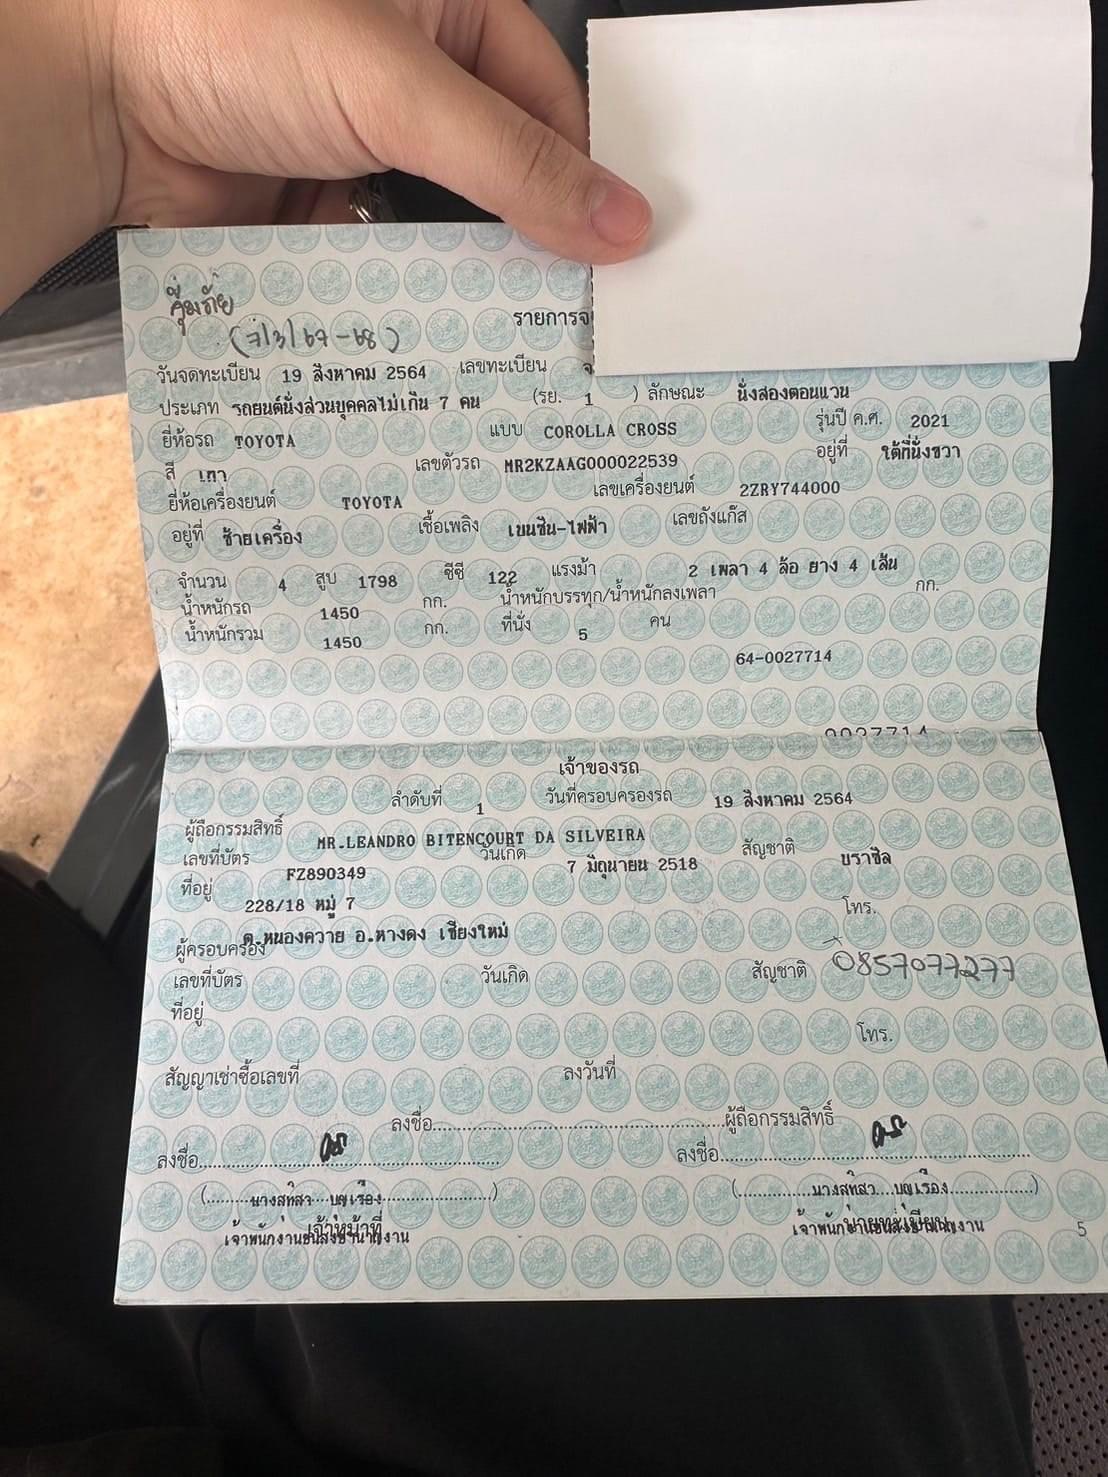 (7/3/67-68)
รายการจ
วันจดทะเบียน 19 สิงหาคม 2564 เลขทะเบียน
ประเภท รถยนต์นั่งส่วนบุคคลไม่เกิน 7 คน (รย. 1 ) ลักษณะ นั่งสองตอนแวน
ยี่ห้อรถ TOYOTA แบบ COROLLA CROSS รุ่นปี ค.ศ. 2021
สี เทา เลขตัวรถ MR2KZAAG000022539 อยู่ที่ ใต้ที่นั่งขวา
ยี่ห้อเครื่องยนต์ TOYOTA เลขเครื่องยนต์ 2ZRY744000
อยู่ที่ ซ้ายเครื่อง เชื้อเพลิง เบนซิน-ไฟฟ้า เลขถังแก๊ส
จำนวน 4 สูบ 1798 ซีซี 122 แรงม้า 2 เพลา 4 ล้อ ยาง 4 เส้น
น้ำหนักรถ 1450 กก. น้ำหนักบรรทุก/น้ำหนักลงเพลา กก.
น้ำหนักรวม 1450 กก. ที่นั่ง 5 คน
64-0027714
0027714
เจ้าของรถ
ลำดับที่ 1 วันที่ครอบครองรถ 19 สิงหาคม 2564
ผู้ถือกรรมสิทธิ์ MR.LEANDRO BITENCOURT DA SILVEIRA
เลขที่บัตร FZ890349 วันเกิด 7 มิถุนายน 2518 สัญชาติ บราซิล
ที่อยู่ 228/18 หมู่ 7 โทร.
ต.หนองควาย อ.หางดง เชียงใหม่
ผู้ครอบครอง
เลขที่บัตร วันเกิด สัญชาติ 0857077277
ที่อยู่ โทร.
สัญญาเช่าซื้อเลขที่ ลงวันที่
ลงชื่อ ผู้ถือกรรมสิทธิ์
ลงชื่อ ลงชื่อ
(นางสุทิสา บุญเรือง) (นางสุทิสา บุญเรือง)
เจ้าหน้าที่ นายทะเบียน
เจ้าพนักงานขนส่งชำนาญงาน เจ้าพนักงานขนส่งชำนาญงาน 5